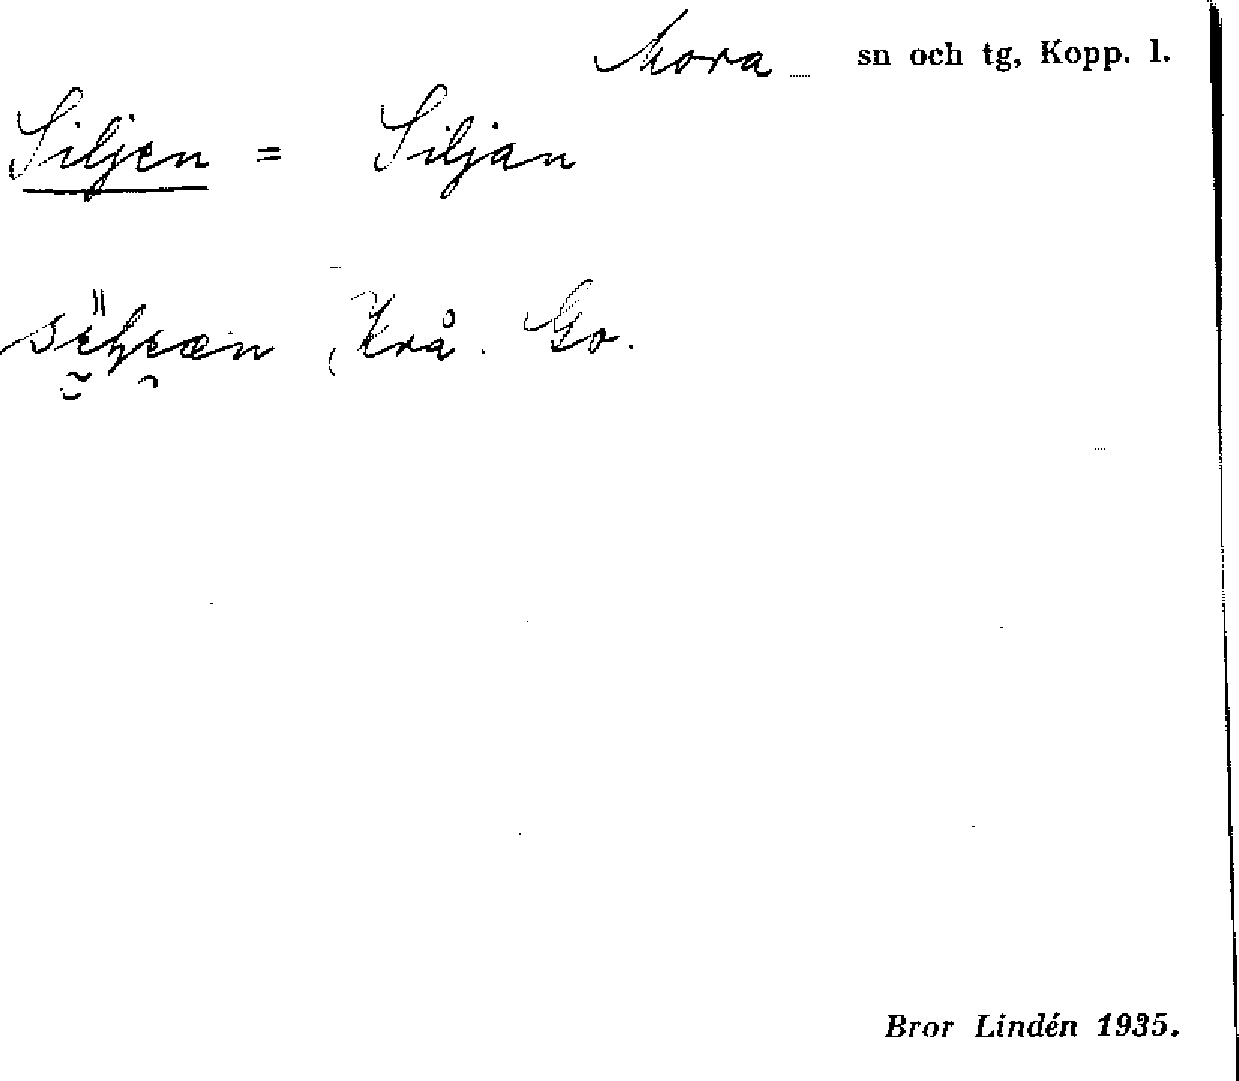 Mora sn och tg, Kopp. l.
Siljen = Siljan
Krå. Go.
Bror Lindén 1935.